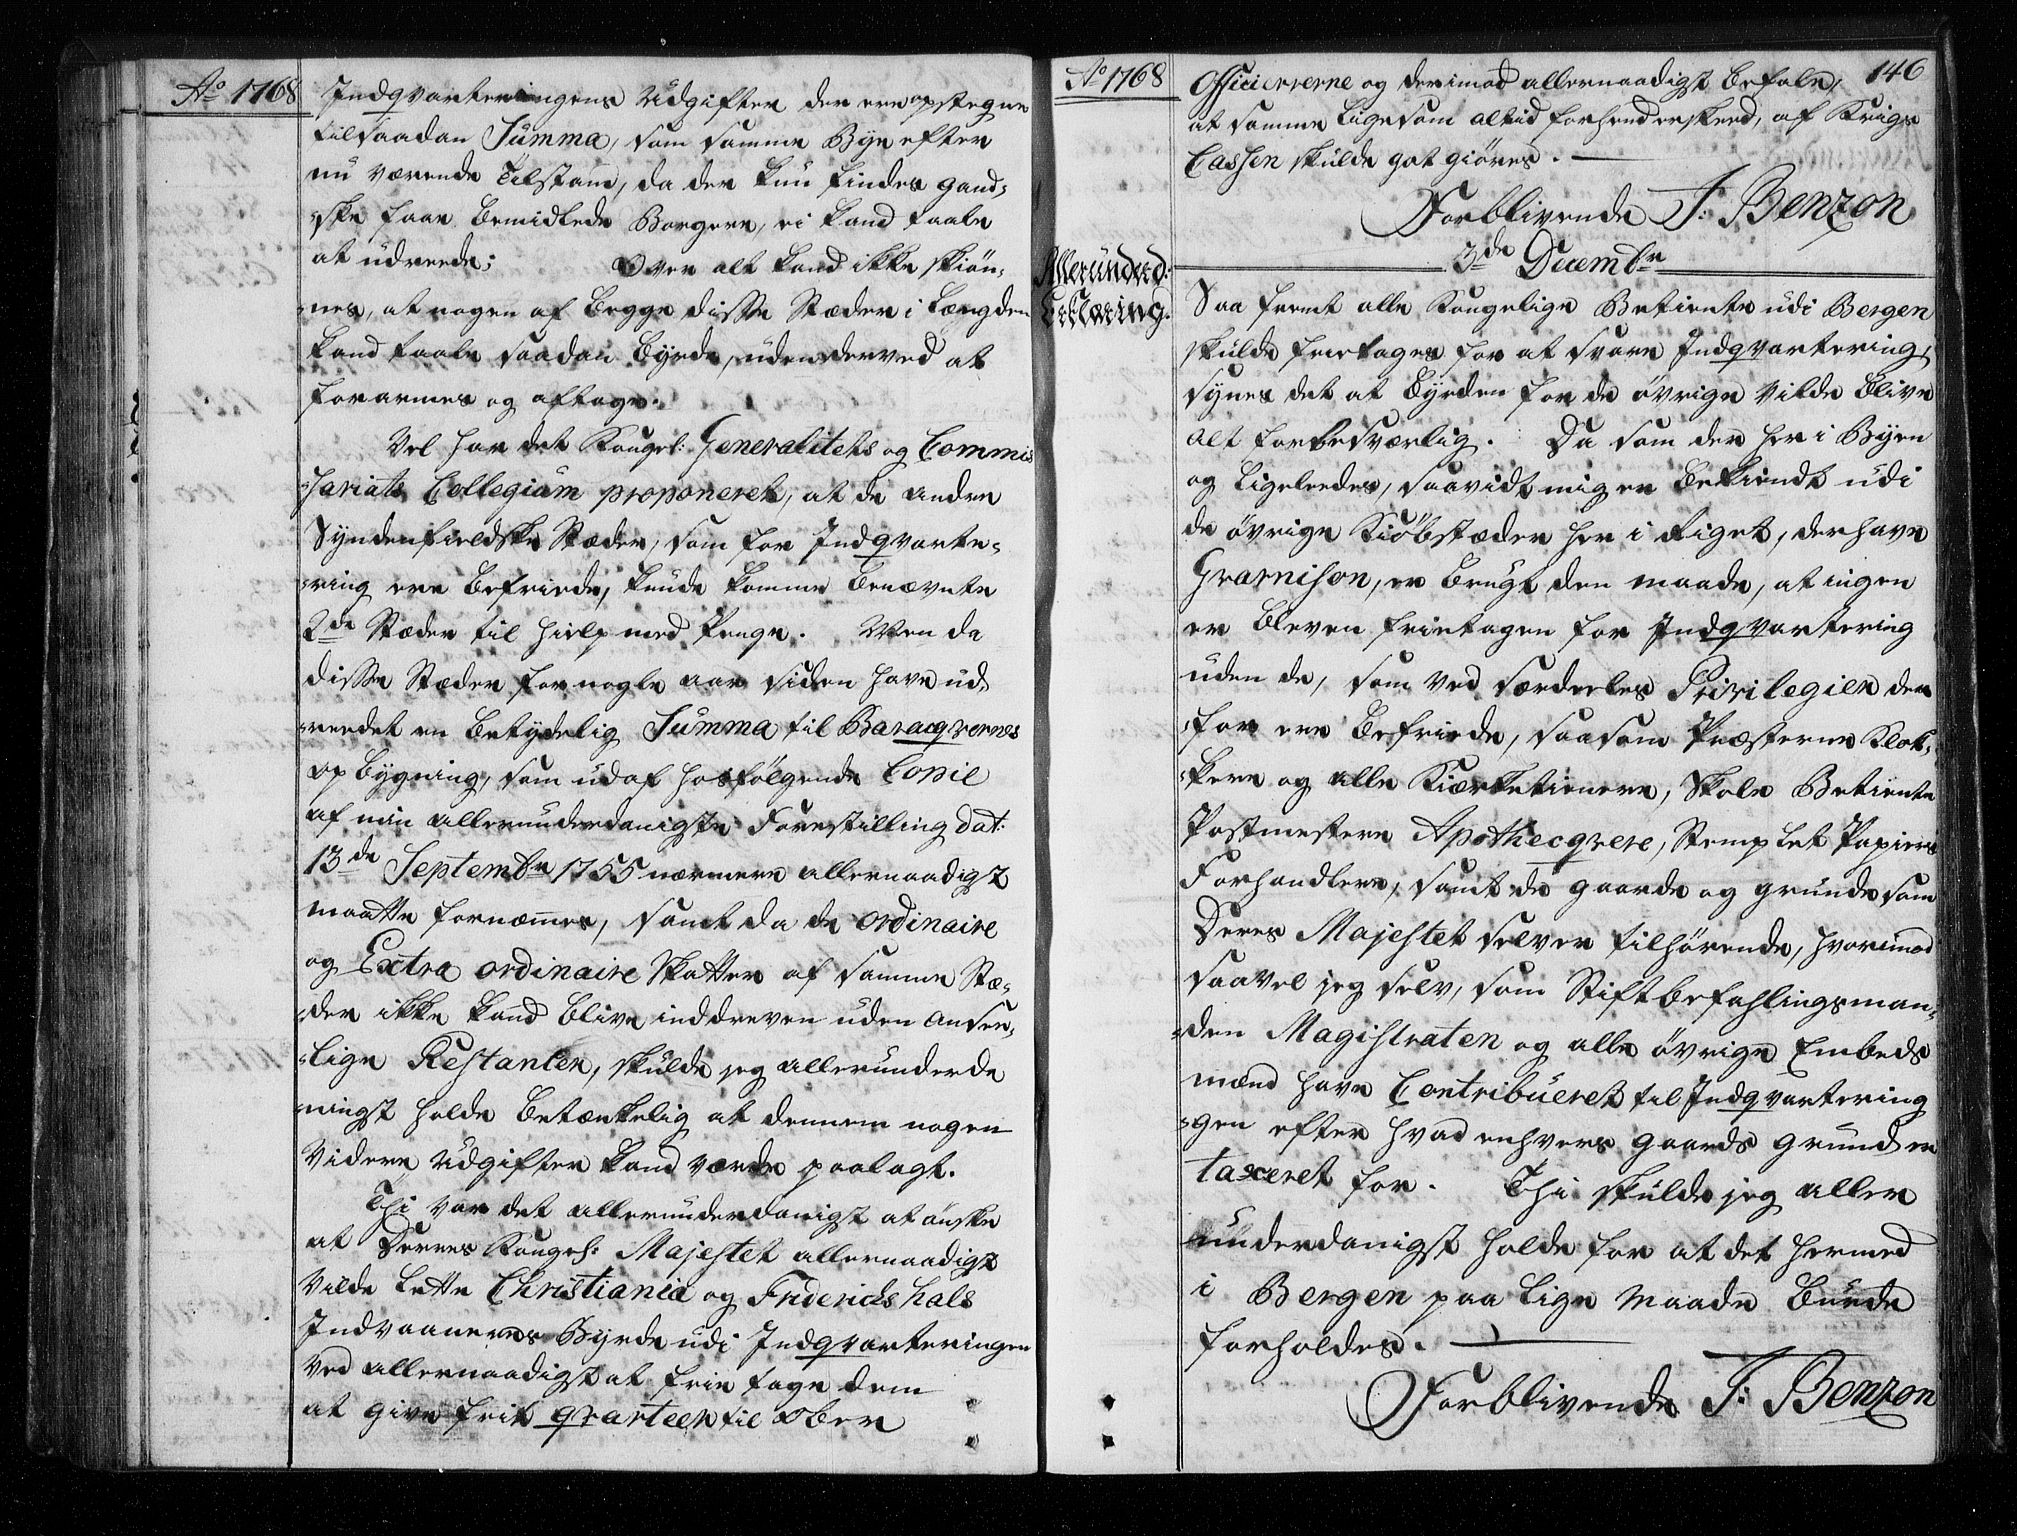 Ao 1768
Indqvarteringens Udgifter der ere opstegne
til saadan Summa, som samme Bye efter
nu værende Tilstand, da der kun findes gand-
-ske faae bemidlede Borgere, ei kand taale
at udreede; Over alt kand ikke skiøn-
-nes, at nogen af begge disse Stæder i Længden
kand taale saadan Byrde, uden derved at
forarmes og aftage.
Vel har det Kongel: Generalitets og Commis
-sariats Collegium proponeret, at de andre
Syndenfieldske Stæder, som for Indqvarte-
-ring ere befriede, kunde komme benævnte
2de Stæder til Hielp med Penge. Men da
disse Stæder for nogle aar siden have ud-
-reedet en betydelig Summa til Baracqvernes
opbygning, som udaf hosfølgende Copie
af min allerunderdanigste Forestilling dat:
13de Septembr 1755 nærmere allernaadigst
maatte fornemmes, samt da de ordinaire
og Extra ordinaire Skatter af samme Stæ-
-der ikke kand blive inddreven uden ansee-
-lige Restantzer, skulde jeg allerunderda
-nigst holde betænkelig at dennem nogen
Videre Udgifter kand værde paalagt.
Thi var det allerunderdanigst at ønske
at Deres Kongel: Majestet allernaadigst
vilde lette Christiania og Friderichshals
Indvaaneres Byrde udi Indqvarteringen
ved allernaadigst at frie tage dem
at give frit qvarteer til Ober
Ao 1768
146
Officiererne og derimod allernaadigst befale,
at samme Ligesom altid forhen er skeed, af Krigs
Cassen skulde got giøres.
Forblivende J: Benzon
3de Decembr
Allerunderd:
Erklæring.
Saa fremt alle Kongelige Betiente udi Bergen
skulde frietages for at svare Indqvartering,
synes det at Byrden for de øvrige vilde blive
alt for besværlig. Da som der her i Byen
og Ligeleedes, saavidt mig er bekiendt udi
de øvrige Kiøbstæder her i Riget, der have
Guarnison, er brugt den maade, at ingen
er bleven frietagen for Indqvartering
uden de, som ved særdeeles Privilegier der
-for ere befriede, saasom Præsterne Klok-
-kere og alle Kirketienere, Skole Betiente
Postmestere Apothecqvere, Stemplet Papiirs
Forhandlere, samt de gaarde og grunde som
Deres Majestet selver tilhørende, hvorimod
saavel jeg selv, som Stiftbefahlingsman-
-den Magistraten og alle øvrige Embeds
mænd have Contribueret til Indqvartering
-gen efter hvad enhvers gaards grund er
taxeret for. Thi skulde jeg aller
underdanigst holde for at det hermed
i Bergen paa lige maade burde
forholdes.
Forblivende J: Benzon